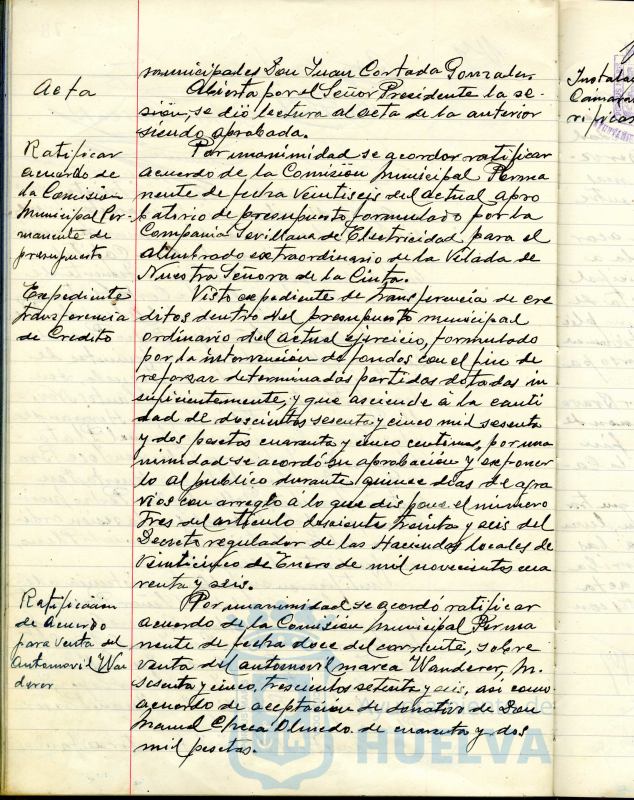 municipales Don Juan Cortada Gonzalez.
Acta
Abierta por el Señor Presidente la se-
sión, se dió lectura al acta de la anterior
siendo aprobada.
Ratificar
acuerdo de
la Comisión
Municipal Per-
manente de
presupuesto
Por unanimidad se acordor ratificar
acuerdo de la Comisión Municipal Perma
nente de fecha veintiseis del actual apro
batorio de presupuesto formulado por la
Compañia Sevillana de Electricidad para el
alumbrado extraordinario de la Velada de
Nuestra Señora de la Cinta.
Expediente
transferencia
de Credito
Visto expediente de transferencia de cre
ditos dentro del presupuesto municipal
ordinario del actual ejercicio, formulado
por la intervención de fondos con el fin de
reforzar determinadas partidas dotadas in
suficientemente, y que asciende á la canti
dad de doscientos sesenta y cinco mil sesenta
y dos pesetas cuarenta y cinco centimos, por una
nimidad se acordó su aprobación y exponer
lo al publico durante quince dias de agra
vios con arreglo á lo que dispone el número
tres del articulo doscientos treinta y seis del
Decreto regulador de las Haciendas locales de
veinticinco de Enero de mil novecientos cua
renta y seis.
Ratificación
de Acuerdo
para venta del
Automovil Wan
derer
Por unanimidad se acordó ratificar
acuerdo de la Comisión Municipal Perma
nente de fecha doce del corriente, sobre
venta del automovil marca Wanderer, M.
sesenta y cinco, trescientos setenta y seis, asi como
acuerdo de aceptación de donativo de Don
Manuel Checa Olmedo de cuarenta y dos
mil pesetas.
Instala
Cámara
rificas
HUELVA